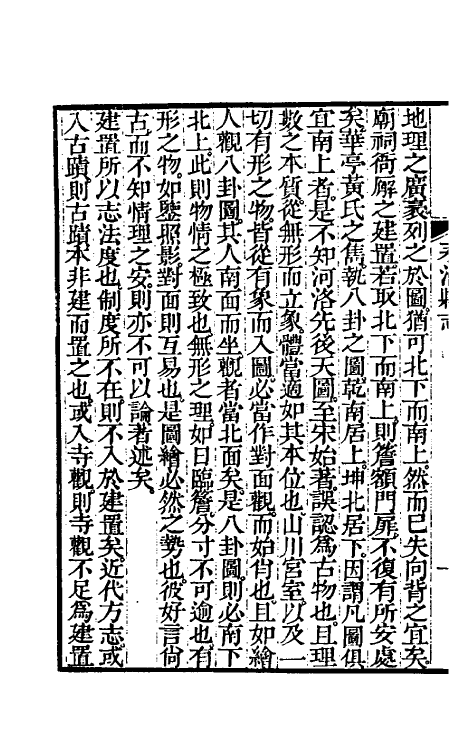 地理之廣袤列之於圖猶可北下而南上然而已失向背之宜矣
廟祠衙廨之建置若取北下而南上則簷額門扉不復有所安處
矣華亭黃氏之雋執八卦之圖乾南居上坤北居下因謂凡圖俱
宜南上者是不知河洛先後天圖至宋始著誤認為古物也且理
數之本質從無形而立象體當適如其本位也山川宮室以及一
切有形之物皆從有象而入圖必當作對面觀而始肖也且如繪
人觀八卦圖其人南面而坐觀者當北面矣是八卦圖則必南下
北上此則物情之極致也無形之理如日臨簷分寸不可逾也有
形之物如鑒照影對面則互易也是圖繪必然之勢也彼好言尚
古而不知情理之安則亦不可以論著述矣
建置所以志法度也制度所不在則不入於建置矣近代方志或
入古蹟則古蹟本非建而置之也或入寺觀則寺觀不足為建置